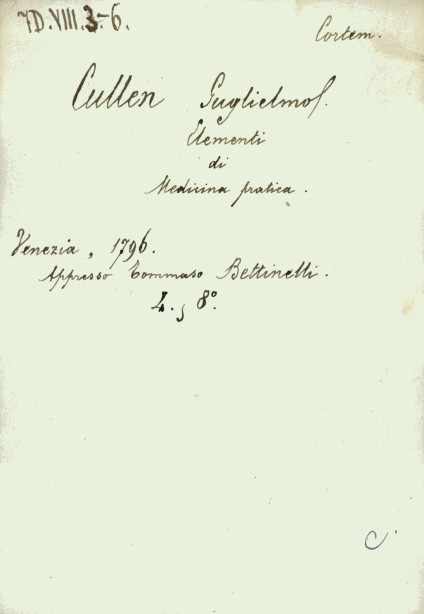 7D.VIII.3-6.
Cortem.
Cullen Guglielmo.
Elementi
di
Medicina pratica.
Venezia, 1796.
Appresso Tommaso Bettinelli.
4., 8º.
C.